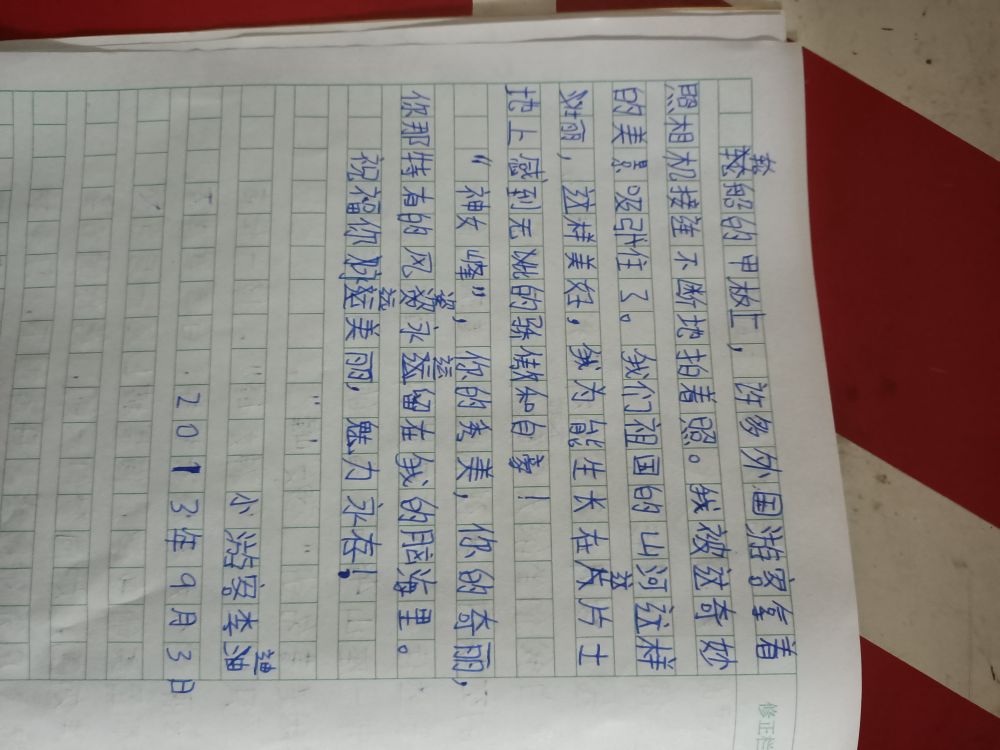 轮船的甲板上，许多外国游客拿着
照相机接连不断地拍着照。我被这奇妙
的美景吸引住了。我们祖国的山河这样
壮丽，这样美好，我为能生长在这片土
地上感到无比的骄傲和自豪！
“神女峰”，你的秀美，你的奇丽，
你那特有的风姿永远留在我的脑海里。
祝福你永远美丽，魅力永存！
小游客李迪
2013年9月3日
修正栏